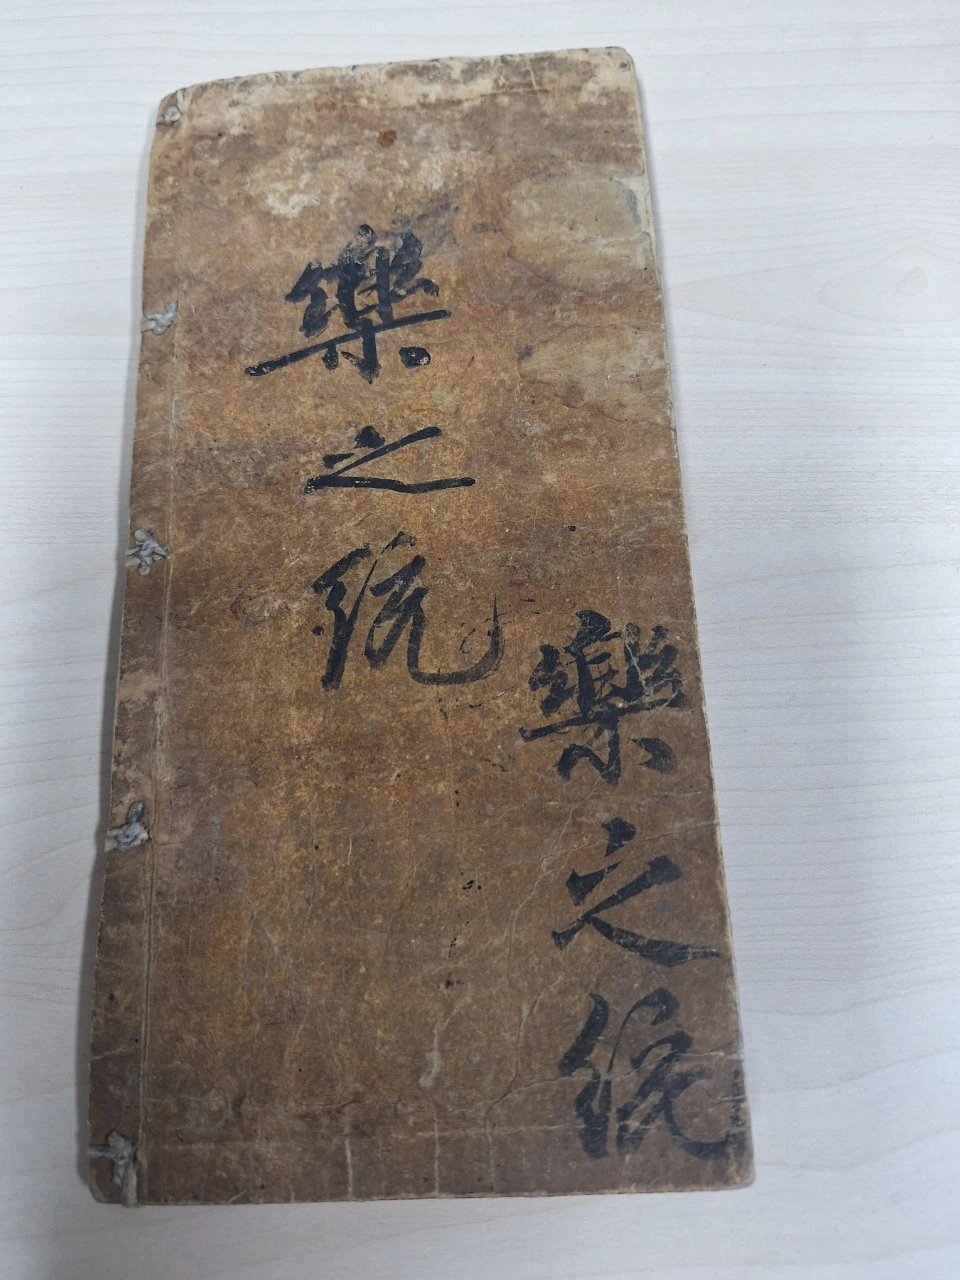 樂之統
樂之統